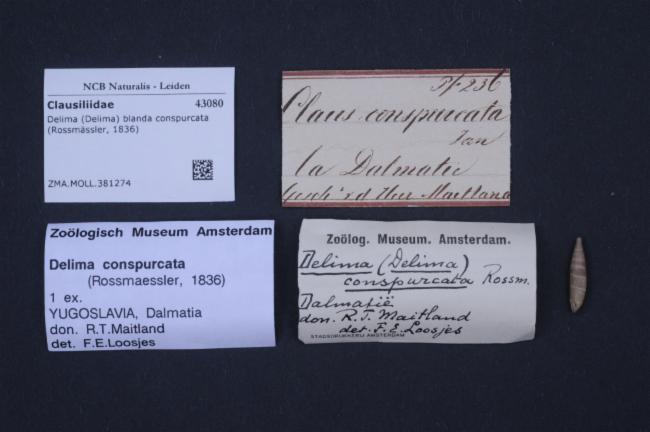 NCB Naturalis - Leiden
Clausiliidae 43080
Delima (Delima) blanda conspurcata
(Rossmässler, 1836)
ZMA.MOLL.381274
Pf. 236
Claus. conspurcata
Jan
la Dalmatie
d Heer Maitland
Zoölogisch Museum Amsterdam
Delima conspurcata
(Rossmaessler, 1836)
1 ex.
YUGOSLAVIA, Dalmatia
don. R.T.Maitland
det. F.E.Loosjes
Zoölog. Museum. Amsterdam.
Delima (Delima)
conspurcata Rossm.
Dalmatië
don. R.T. Maitland
det. F.E. Loosjes
STADSDRUKKERIJ AMSTERDAM